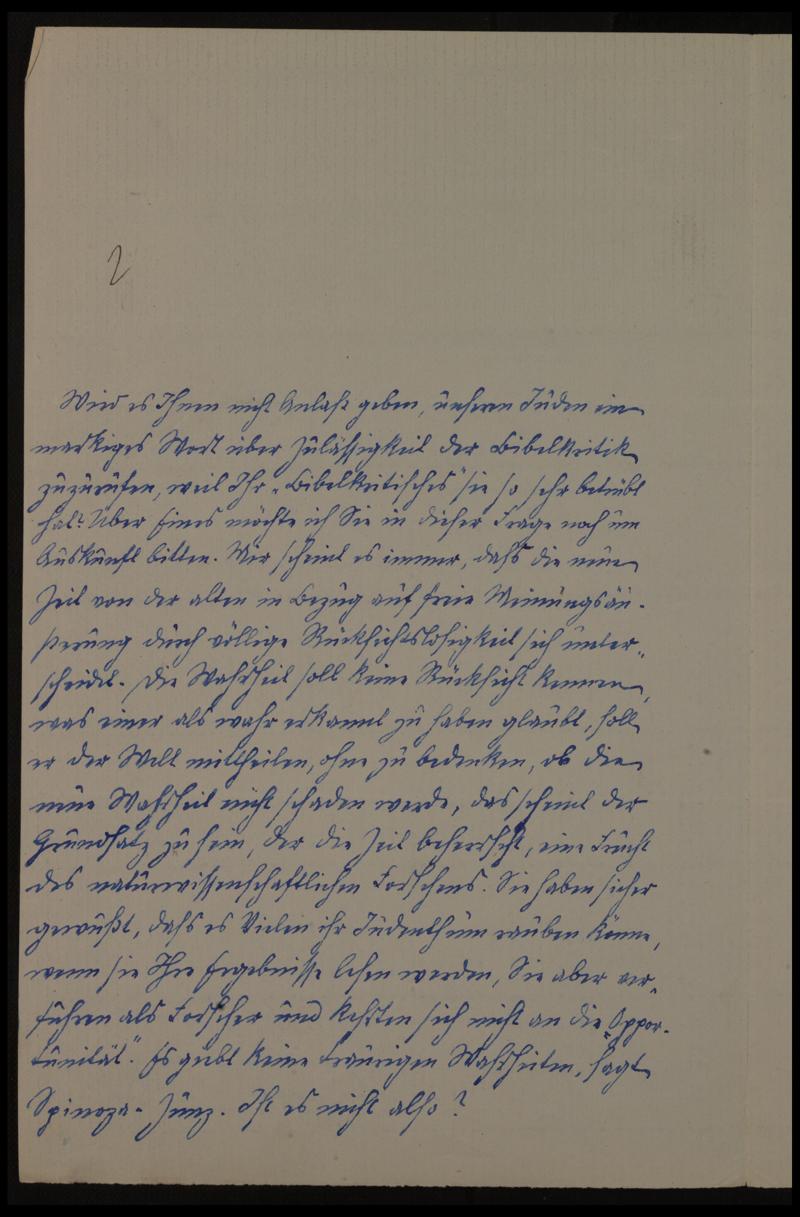 2
Wird es Ihnen nicht Anlaß geben, unseren Juden ein
markiges Wort über Zulässigkeit der Bibelkritik
zuzurufen, weil Ihr „Bibelkritisches" sie so sehr betrübt
hat? Über Eines möchte ich Sie in dieser Frage noch um
Auskunft bitten. Mir scheint es immer, daß die neue
Zeit von der alten in Bezug auf freie Meinungsäu-
ßerung durch völlige Rücksichtslosigkeit sich unter-
scheidet. Die Wahrheit soll keine Rücksicht kennen,
was einer als wahr erkannt zu haben glaubt, soll
er der Welt mittheilen, ohne zu bedenken, ob die
neue Wahrheit nicht schaden werde, das scheint der
Grundsatz zu sein, der die Zeit beherrscht, eine Frucht
des naturwissenschaftlichen Forschens. Sie haben sicher
gewußt, daß es Vielen ihr Judenthum rauben könne,
wenn sie Ihre Ergebnisse lesen werden, Sie aber ver-
fuhren als Forscher und kehrten sich nicht an die „Oppor-
tunität". Es giebt keine traurigen Wahrheiten, sagt
Spinoza-Zunz. Ist es nicht also?